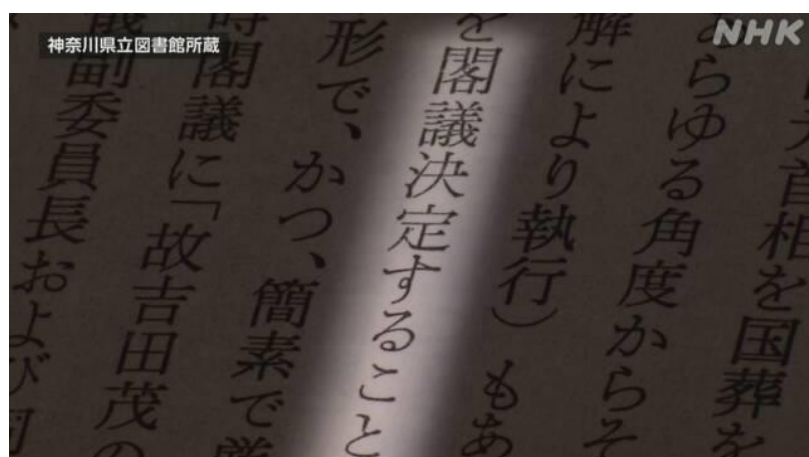 神奈川県立図書館所蔵
NHK
首相を国葬を
あらゆる角度からそ
解により執行)もあ
を閣議決定すること
形で、かつ、簡素で厳
時閣議に「故吉田茂の
副委員長および